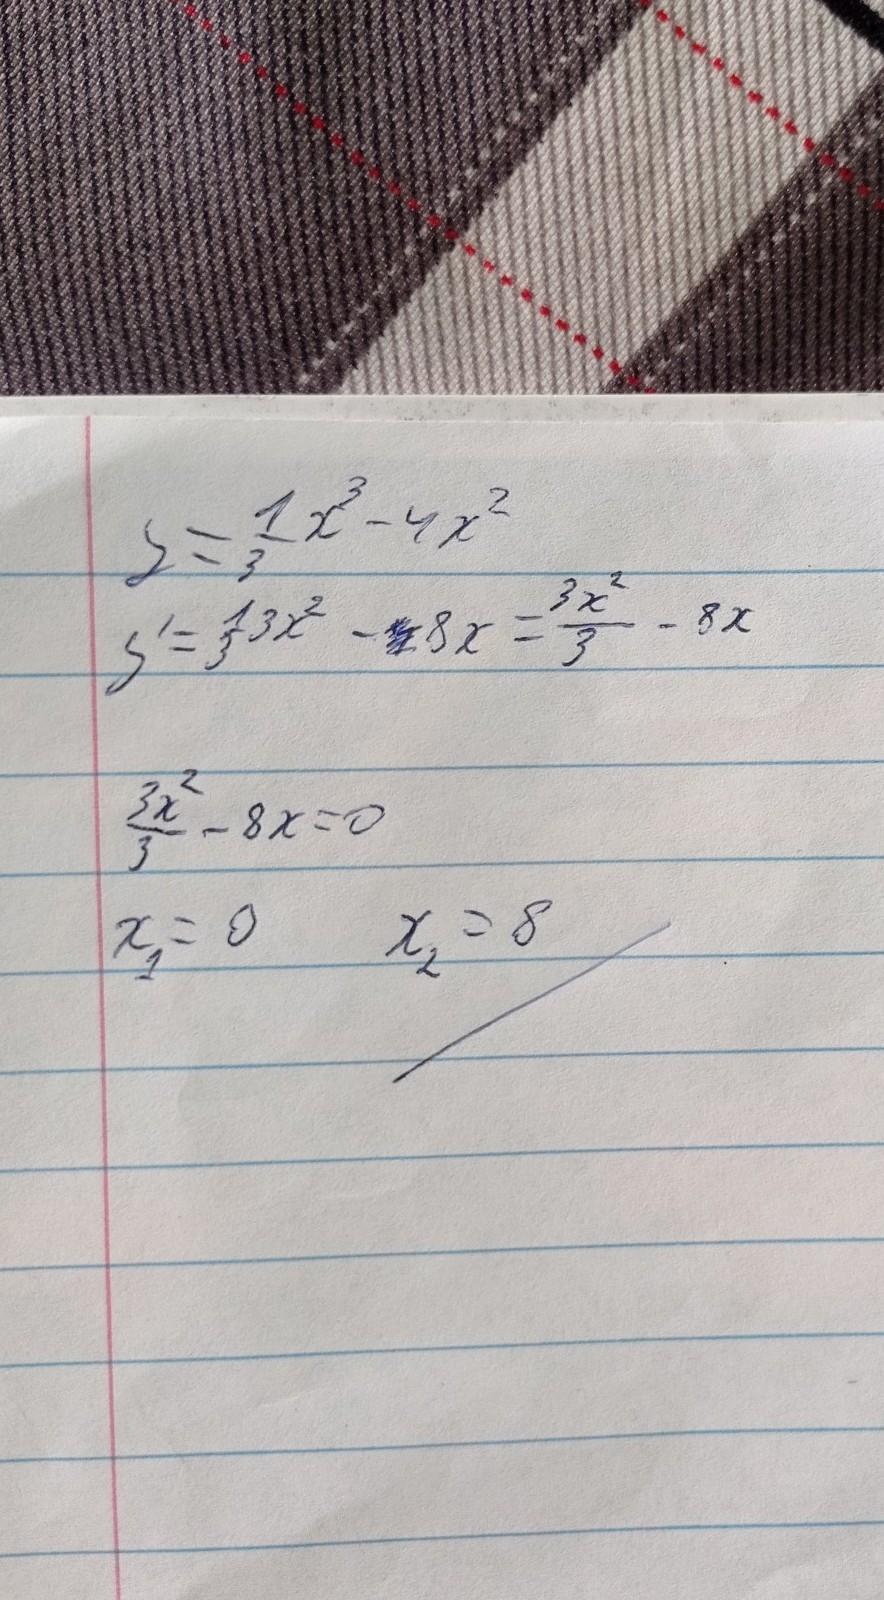 y = 1/3 x³ - 4x²
y' = 1/3 3x² - 8x = 3x²/3 - 8x
3x²/3 - 8x = 0
x₁ = 0 x₂ = 8